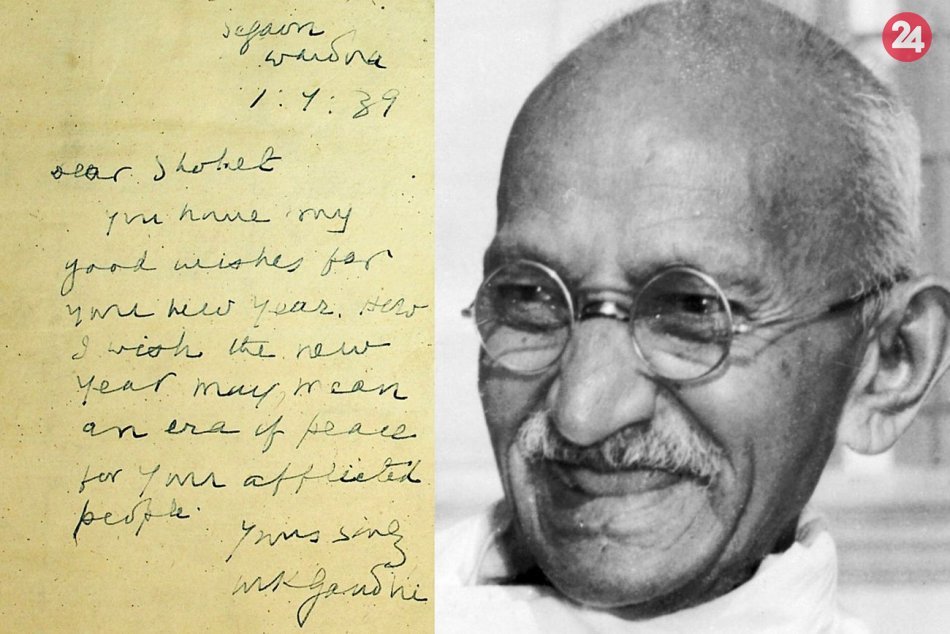 Segaon
Wardha
1:9:39
Dear Shohet
You have my
good wishes for
your new year. How
I wish the new
year may mean
an era of peace
for your afflicted
people.
Yours sincly
MKGandhi
24